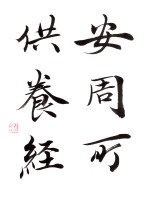 安周可
供養経